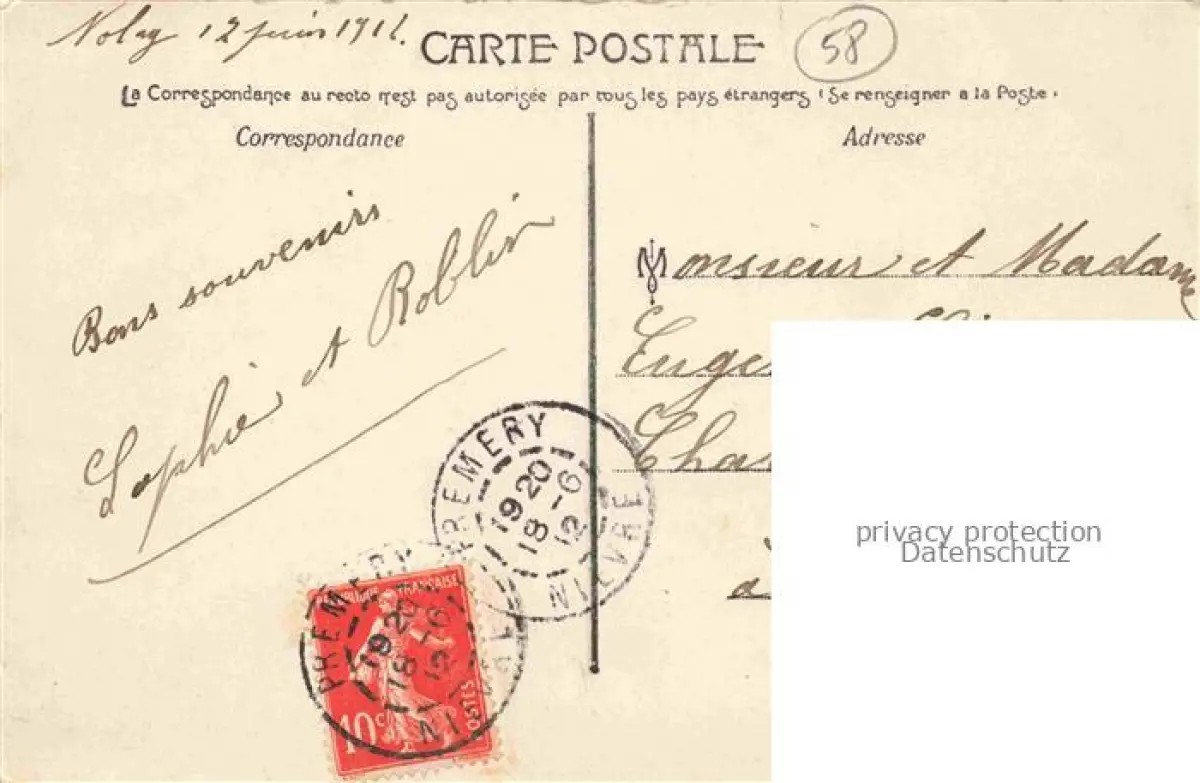 Nolay 12 juin 1912.
CARTE POSTALE
58
La Correspondance au recto n'est pas autorisée par tous les pays étrangers (Se renseigner a la Poste)
Correspondance
Adresse
Bons souvenirs
Sophie et Roblin
Monsieur et Madame
PREMERY
19 20
18 -6
12
NIEVRE
PREMERY
19 20
18 -6
12
NIEVRE
REPUBLIQUE FRANÇAISE
10c
POSTES
privacy protection
Datenschutz
a